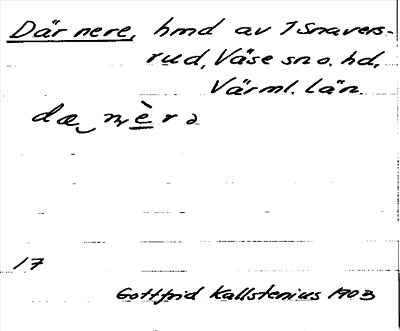 Där nere, hmd av 1 Snavers-
rud, Väse sn o. hd,
Värml. län.
dæ‿nè̱rə
17
Gottfrid Kallstenius 1903